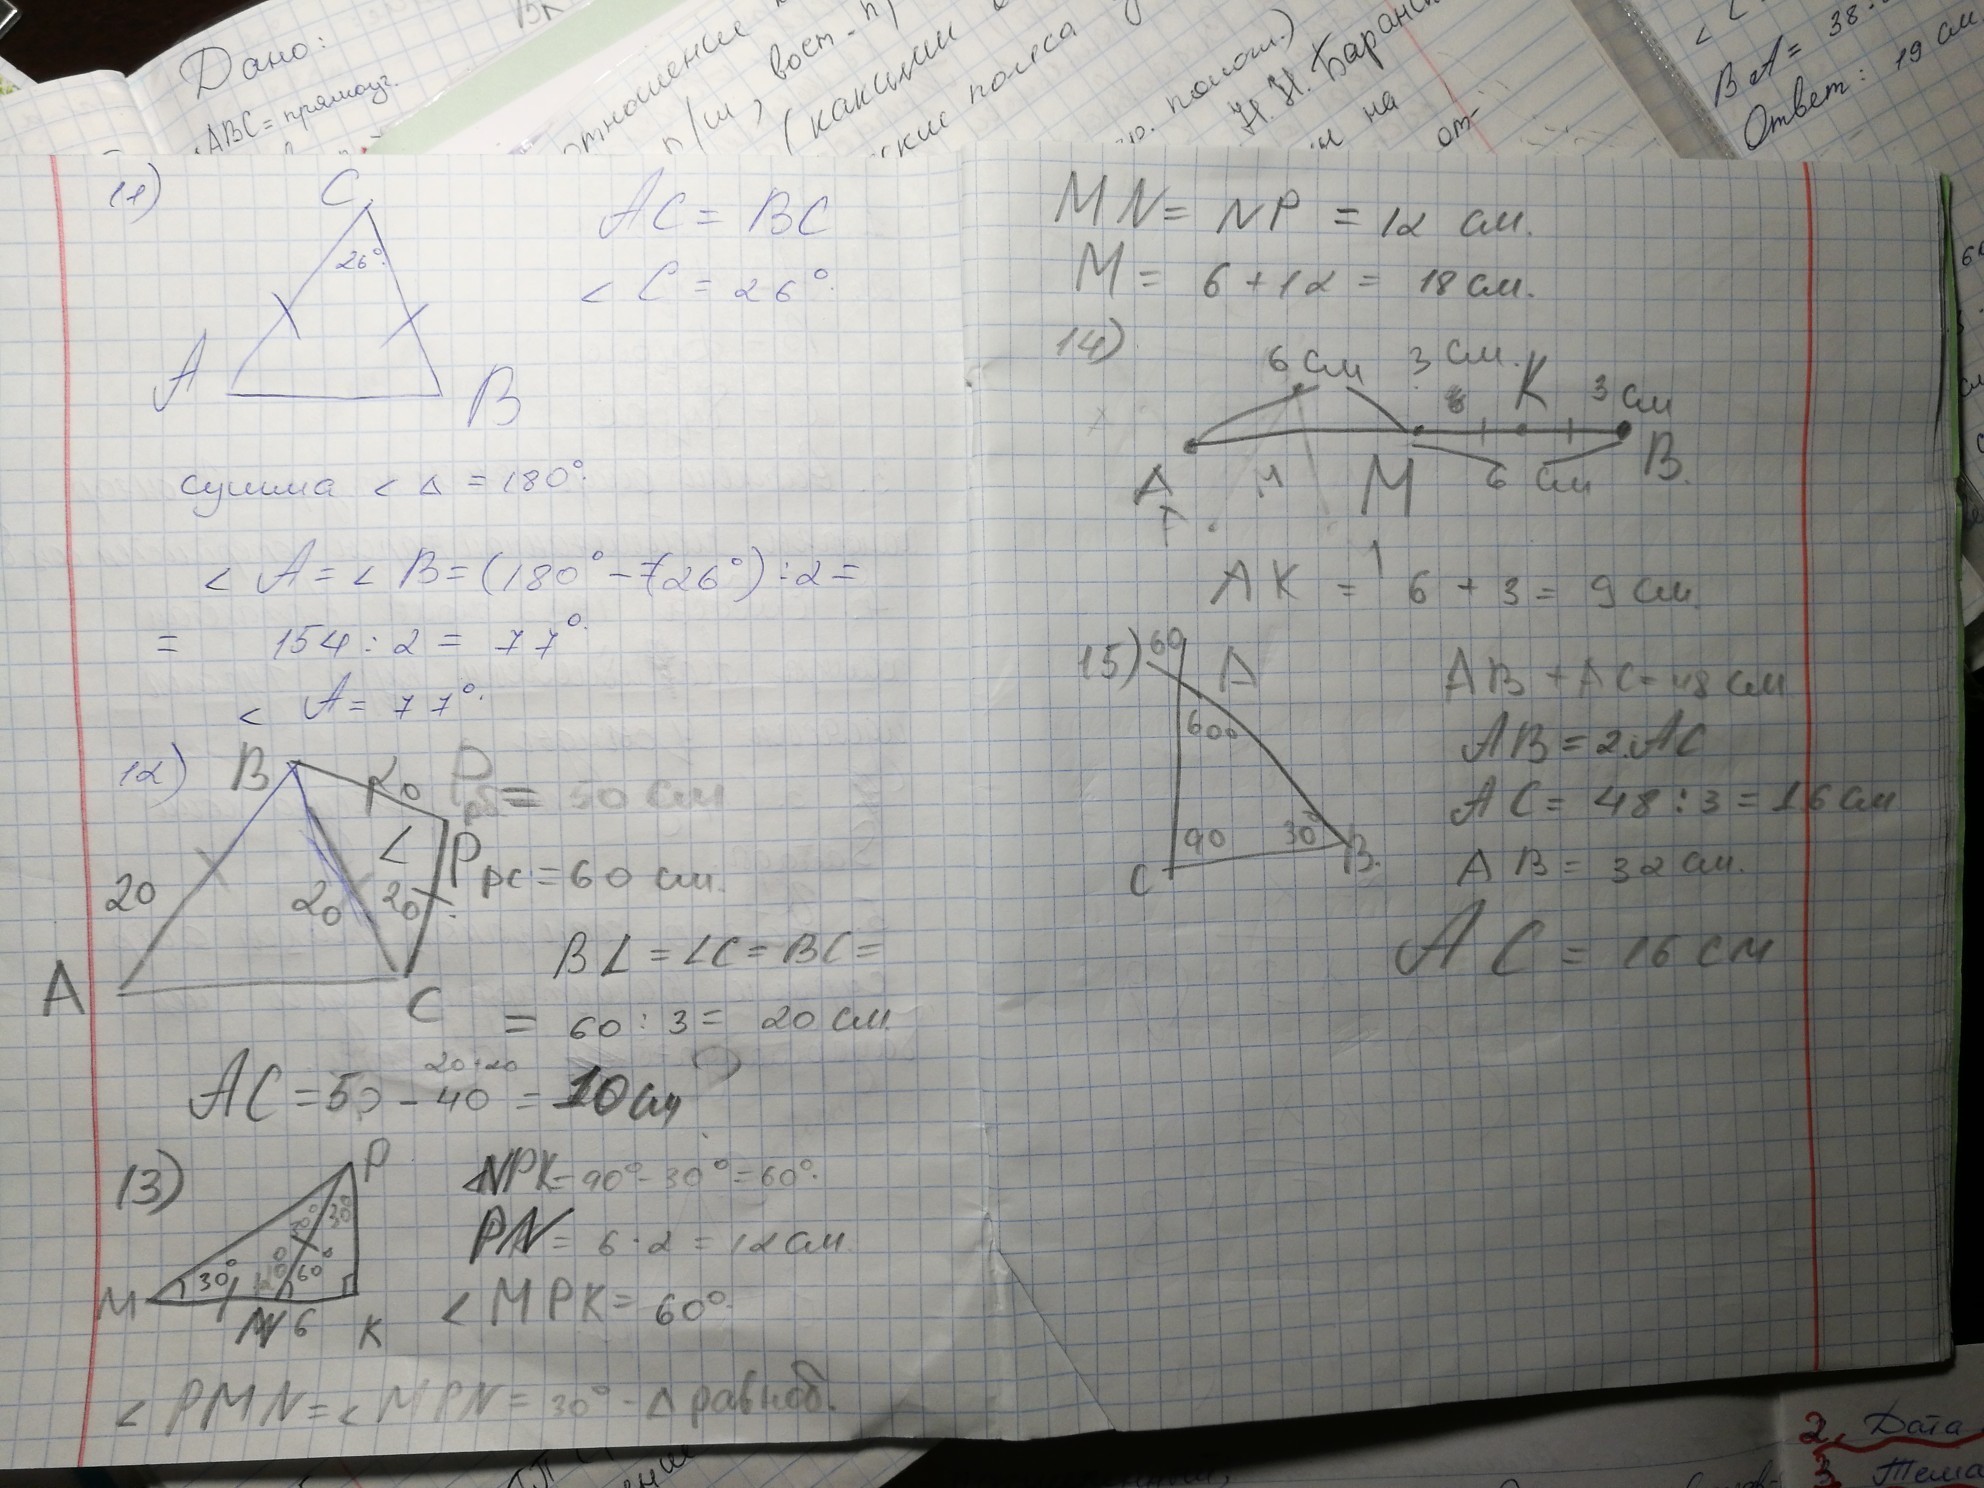 Дано:
ABC = прямоуг.
отношение
п/ш, вост. п
(какими
ские полеса
полош.)
Н. Н. Баранск
на
от-
BA = 38
Ответ: 19 см
11)
C
26°
A
B
AC = BC
< C = 26°
сумма < Δ = 180°
< A = < B = (180° - 26°) : 2 =
= 154 : 2 = 77°
< A = 77°
12)
B
20
20
20
20
L
A
C
P = 50 см
P рс = 60 см.
BL = LC = BC =
= 60 : 3 = 20 см
20+20
AC = 50 - 40 = 10 см
13)
P
30°
30°
30°
60°
M
N
6
K
NPK = 90° - 30° = 60°
PN = 6 · 2 = 12 см
< MPK = 60°
< PMN = < MPN = 30° - Δ равноб.
MN = NP = 12 см.
M = 6 + 12 = 18 см.
14)
6 см
3 см.
K
3 см
A
M
6 см
B
AK = 6 + 3 = 9 см
15)
60
A
60°
90
30°
C
B
AB + AC = 48 см
AB = 2 AC
AC = 48 : 3 = 16 см
AB = 32 см.
AC = 16 см
2. Дата
3. Тема